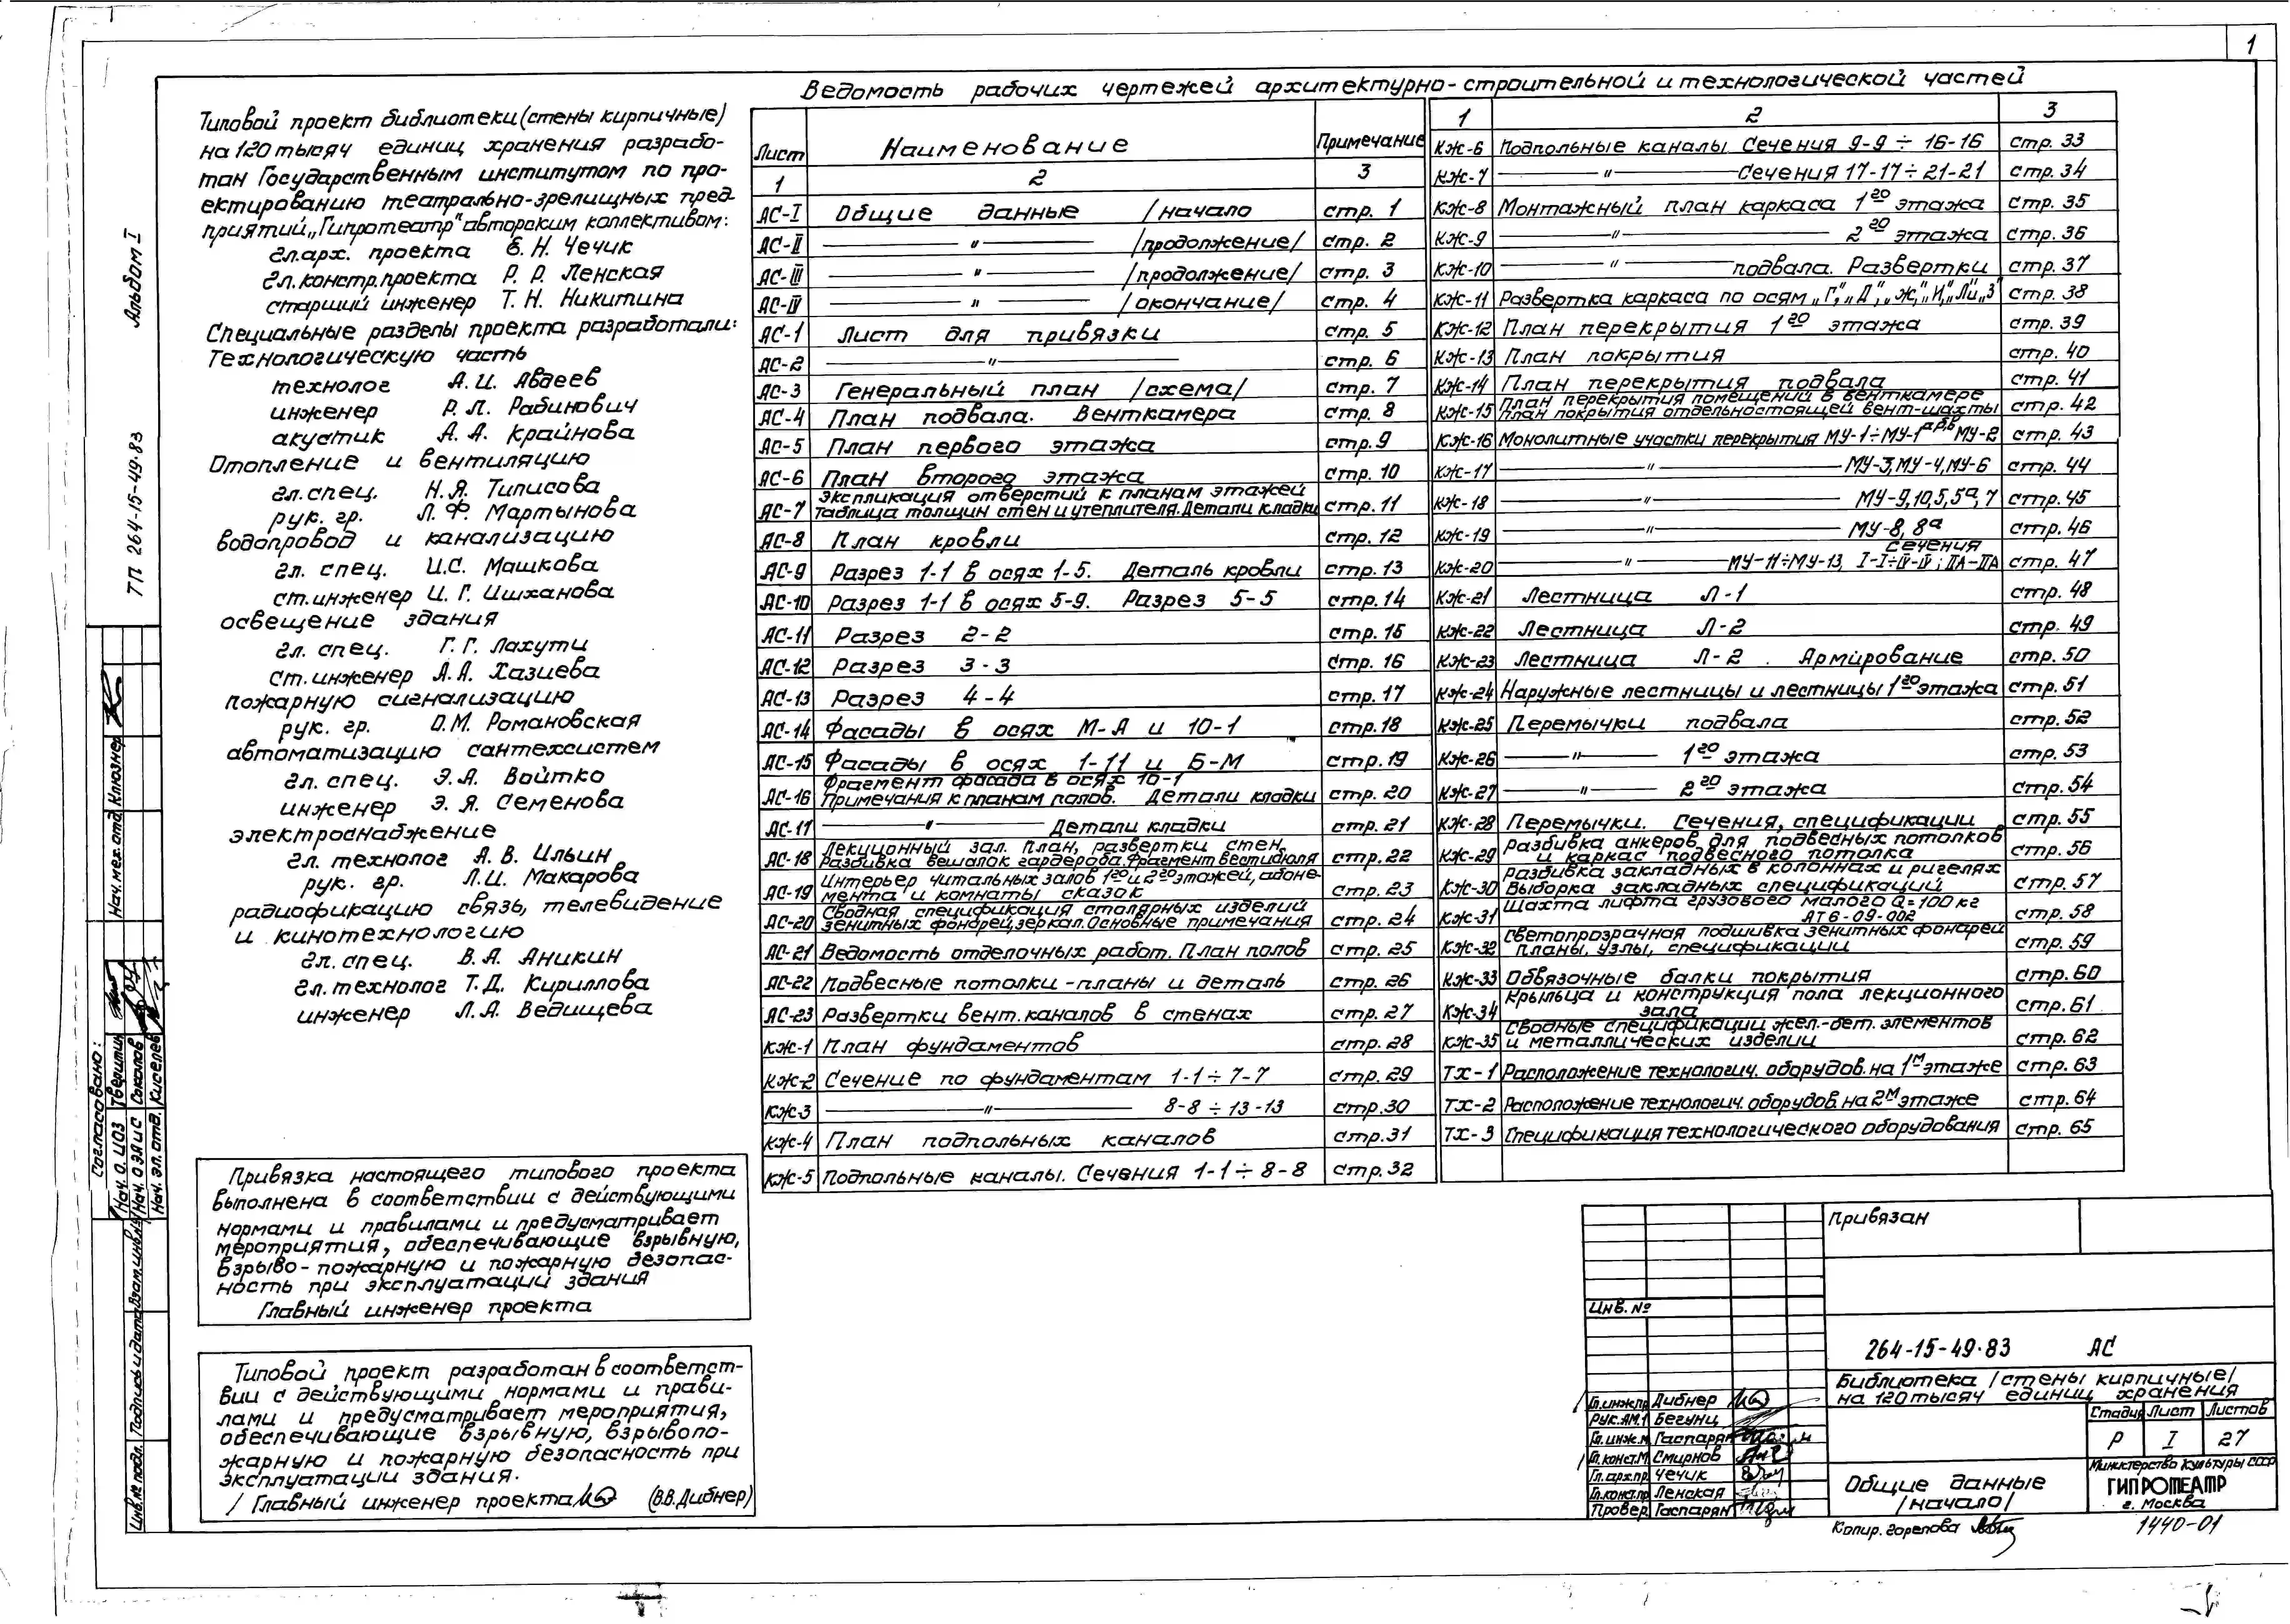 1
Ведомость рабочих чертежей архитектурно-строительной и технологической частей
Типовой проект библиотеки (стены кирпичные)
на 120 тысяч единиц хранения разрабо-
тан Государственным институтом по про-
ектированию театрально-зрелищных пред-
приятий „Гипротеатр" авторским коллективом:
гл. арх. проекта Е. Н. Чечик
гл. констр. проекта Р. Р. Ленская
старший инженер Т. Н. Никитина
Специальные разделы проекта разработали:
Технологическую часть
технолог А. И. Авдеев
инженер Р. Л. Рабинович
акустик А. А. Крайнова
Отопление и вентиляцию
гл. спец. Н. Я. Типисова
рук. гр. Л. Ф. Мартынова
водопровод и канализацию
гл. спец. И. С. Машкова
ст. инженер И. Г. Ишханова
освещение здания
гл. спец. Г. Г. Лахути
ст. инженер А. А. Хазиева
пожарную сигнализацию
рук. гр. О. М. Романовская
автоматизацию сантехсистем
гл. спец. Э. А. Войтко
инженер Э. Я. Семенова
электроснабжение
гл. технолог А. В. Ильин
рук. гр. Л. И. Макарова
радиофикацию связь, телевидение
и кинотехнологию
гл. спец. В. А. Аникин
гл. технолог Т. Д. Кириллова
инженер Л. А. Ведищева
Привязка настоящего типового проекта
выполнена в соответствии с действующими
нормами и правилами и предусматривает
мероприятия, обеспечивающие взрывную,
взрыво-пожарную и пожарную безопас-
ность при эксплуатации здания
Главный инженер проекта
Типовой проект разработан в соответст-
вии с действующими нормами и прави-
лами и предусматривает мероприятия,
обеспечивающие взрывную, взрывопо-
жарную и пожарную безопасность при
эксплуатации здания.
Главный инженер проекта (В.В. Дибнер)
Лист Наименование Примечание
1 2 3
АС-I Общие данные /начало стр. 1
АС-II —"— /продолжение/ стр. 2
АС-III —"— /продолжение/ стр. 3
АС-IV —"— /окончание/ стр. 4
АС-1 Лист для привязки стр. 5
АС-2 —"— стр. 6
АС-3 Генеральный план /схема/ стр. 7
АС-4 План подвала. Венткамера стр. 8
АС-5 План первого этажа стр. 9
АС-6 План второго этажа стр. 10
АС-7 Экспликация отверстий к планам этажей
Таблица толщин стен и утеплителя. Детали кладки стр. 11
АС-8 План кровли стр. 12
АС-9 Разрез 1-1 в осях 1-5. Деталь кровли стр. 13
АС-10 Разрез 1-1 в осях 5-9. Разрез 5-5 стр. 14
АС-11 Разрез 2-2 стр. 15
АС-12 Разрез 3-3 стр. 16
АС-13 Разрез 4-4 стр. 17
АС-14 Фасады в осях М-А и 10-1 стр. 18
АС-15 Фасады в осях 1-11 и Б-М стр. 19
АС-16 Фрагмент фасада в осях 10-1
Примечания к планам полов. Детали кладки стр. 20
АС-17 —"— Детали кладки стр. 21
АС-18 Лекционный зал. План, развертки стен,
Разбивка вешалок гардероба. Фрагмент вестибюля стр. 22
АС-19 Интерьер читальных залов 1го и 2го этажей, абоне-
мента и комнаты сказок стр. 23
АС-20 Сводная спецификация столярных изделий
зенитных фонарей, зеркал. Основные примечания стр. 24
АС-21 Ведомость отделочных работ. План полов стр. 25
АС-22 Подвесные потолки - планы и деталь стр. 26
АС-23 Развертки вент. каналов в стенах стр. 27
КЖ-1 План фундаментов стр. 28
КЖ-2 Сечение по фундаментам 1-1 ÷ 7-7 стр. 29
КЖ-3 —"— 8-8 ÷ 13-13 стр. 30
КЖ-4 План подпольных каналов стр. 31
КЖ-5 Подпольные каналы. Сечения 1-1 ÷ 8-8 стр. 32
1 2 3
КЖ-6 Подпольные каналы. Сечения 9-9 ÷ 16-16 стр. 33
КЖ-7 —"— Сечения 17-17 ÷ 21-21 стр. 34
КЖ-8 Монтажный план каркаса 1го этажа стр. 35
КЖ-9 —"— 2го этажа стр. 36
КЖ-10 —"— подвала. Развертки стр. 37
КЖ-11 Развертка каркаса по осям „Г", „Д", „Ж", „И", „Ли", „З" стр. 38
КЖ-12 План перекрытия 1го этажа стр. 39
КЖ-13 План покрытия стр. 40
КЖ-14 План перекрытия подвала стр. 41
КЖ-15 План перекрытия помещений в венткамере
План покрытия отдельностоящей вент-шахты стр. 42
КЖ-16 Монолитные участки перекрытия МУ-1 ÷ МУ-1а,б,в МУ-2 стр. 43
КЖ-17 —"— МУ-3, МУ-4, МУ-6 стр. 44
КЖ-18 —"— МУ-9, 10, 5, 5а, 7 стр. 45
КЖ-19 —"— МУ-8, 8а стр. 46
КЖ-20 —"— МУ-11 ÷ МУ-13, сечения I-I ÷ IV-IV; IIА-IIА стр. 47
КЖ-21 Лестница Л-1 стр. 48
КЖ-22 Лестница Л-2 стр. 49
КЖ-23 Лестница Л-2. Армирование стр. 50
КЖ-24 Наружные лестницы и лестницы 1го этажа стр. 51
КЖ-25 Перемычки подвала стр. 52
КЖ-26 —"— 1го этажа стр. 53
КЖ-27 —"— 2го этажа стр. 54
КЖ-28 Перемычки. Сечения, спецификации стр. 55
КЖ-29 Разбивка анкеров для подвесных потолков
и каркас подвесного потолка стр. 56
КЖ-30 Разбивка закладных в колоннах и ригелях
Выборка закладных спецификаций стр. 57
КЖ-31 Шахта лифта грузового малого Q=100 кг
АТ6-09-002 стр. 58
КЖ-32 Светопрозрачная подшивка зенитных фонарей
Планы, узлы, спецификации стр. 59
КЖ-33 Обвязочные балки покрытия стр. 60
КЖ-34 Крыльца и конструкция пола лекционного
зала стр. 61
КЖ-35 Сводные спецификации жел.-бет. элементов
и металлических изделий стр. 62
ТХ-1 Расположение технологич. оборудов. на 1м этаже стр. 63
ТХ-2 Расположение технологич. оборудов. на 2м этаже стр. 64
ТХ-3 Спецификация технологического оборудования стр. 65
Привязан
Инв. №
264-15-49.83 АС
Библиотека /стены кирпичные/
на 120 тысяч единиц хранения
Гл. инж. пр. Дибнер
Рук. АМ.1 Бегунц
Гл. инж. м. Гаспарян
Гл. конст. М Смирнов
Гл. арх. пр. Чечик
Гл. конст. пр Ленская
Провер. Гаспарян
Стадия Лист Листов
Р I 27
Общие данные
/начало/
Министерство культуры СССР
ГИПРОТЕАТР
г. Москва
Копир. Горелова
1440-01
Альбом I
ТП 264-15-49.83
Согласовано:
Нач. О. ЦОЗ Тверитин
Нач. ОЭАиС Соколов
Нач. эл. отд. Киселев
Нач. мех. отд. Клюзнер
Инв. № подл. Подпись и дата Взам. инв. №